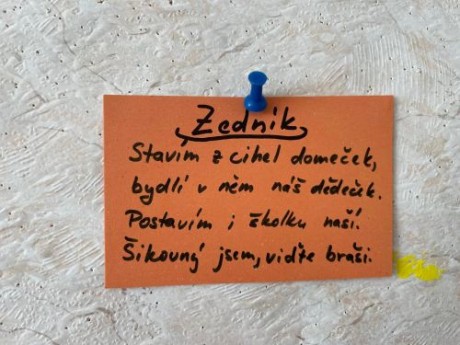 Zedník
Stavím z cihel domeček,
bydlí v něm náš dědeček.
Postavím i školku naší.
Šikovný jsem, viďte braši.